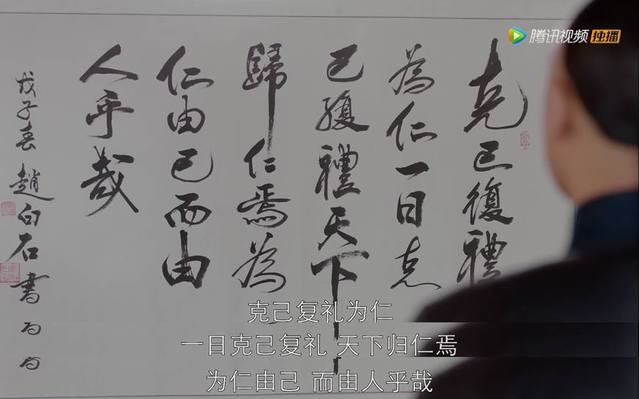 腾讯视频 独播
克己復禮
為仁一日克
己復禮天下
歸仁焉為
仁由己而由
人乎哉
戊子春趙白石書
克己复礼为仁
一日克己复礼 天下归仁焉
为仁由己 而由人乎哉